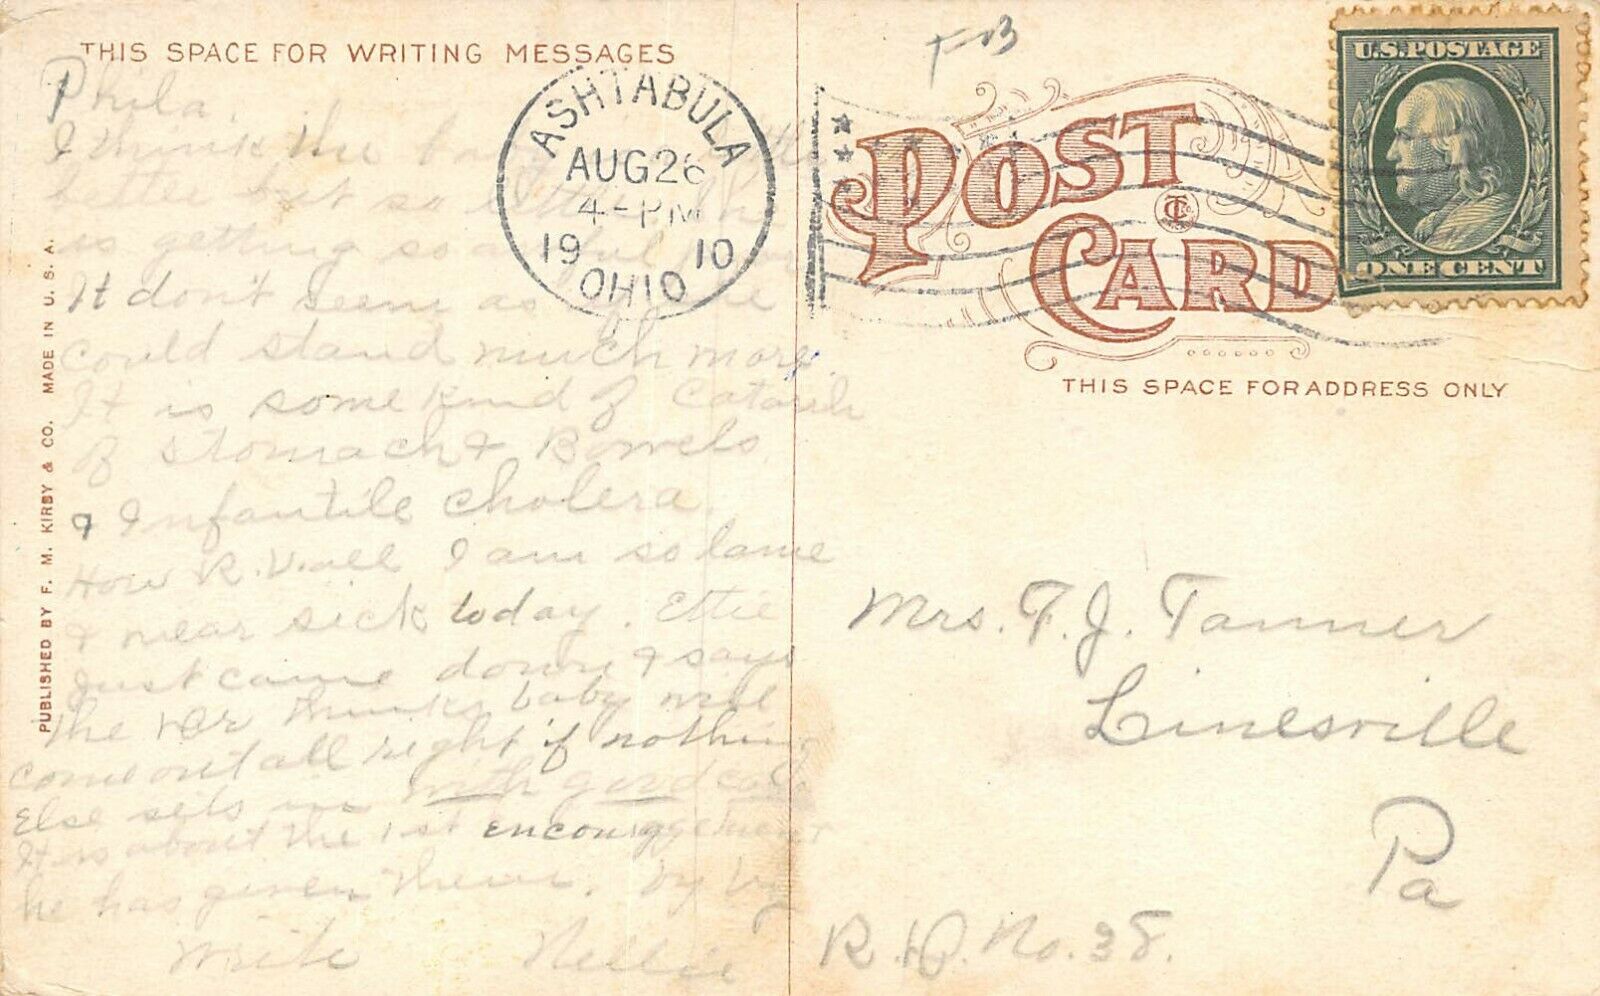 THIS SPACE FOR WRITING MESSAGES
Phila.
I think the
better but so
is getting so
It don't seem as
could stand much more.
It is some kind of Catarrh
of Stomach & Bowels.
& Infantile cholera.
How R. U. all I am so lame
& near sick today. Ettie
Just came down & says
the Dr thinks baby will
come out all right if nothing
Else sets in with good care
It is about the 1st encouragement
he has given them. by by
write Nellie
PUBLISHED BY F. M. KIRBY & CO. MADE IN U.S.A.
ASHTABULA
AUG 26
4-PM
1910
OHIO
POST CARD
U.S. POSTAGE
ONE CENT
THIS SPACE FOR ADDRESS ONLY
Mrs. F. J. Tanner
Linesville
Pa
R.D. No. 38.